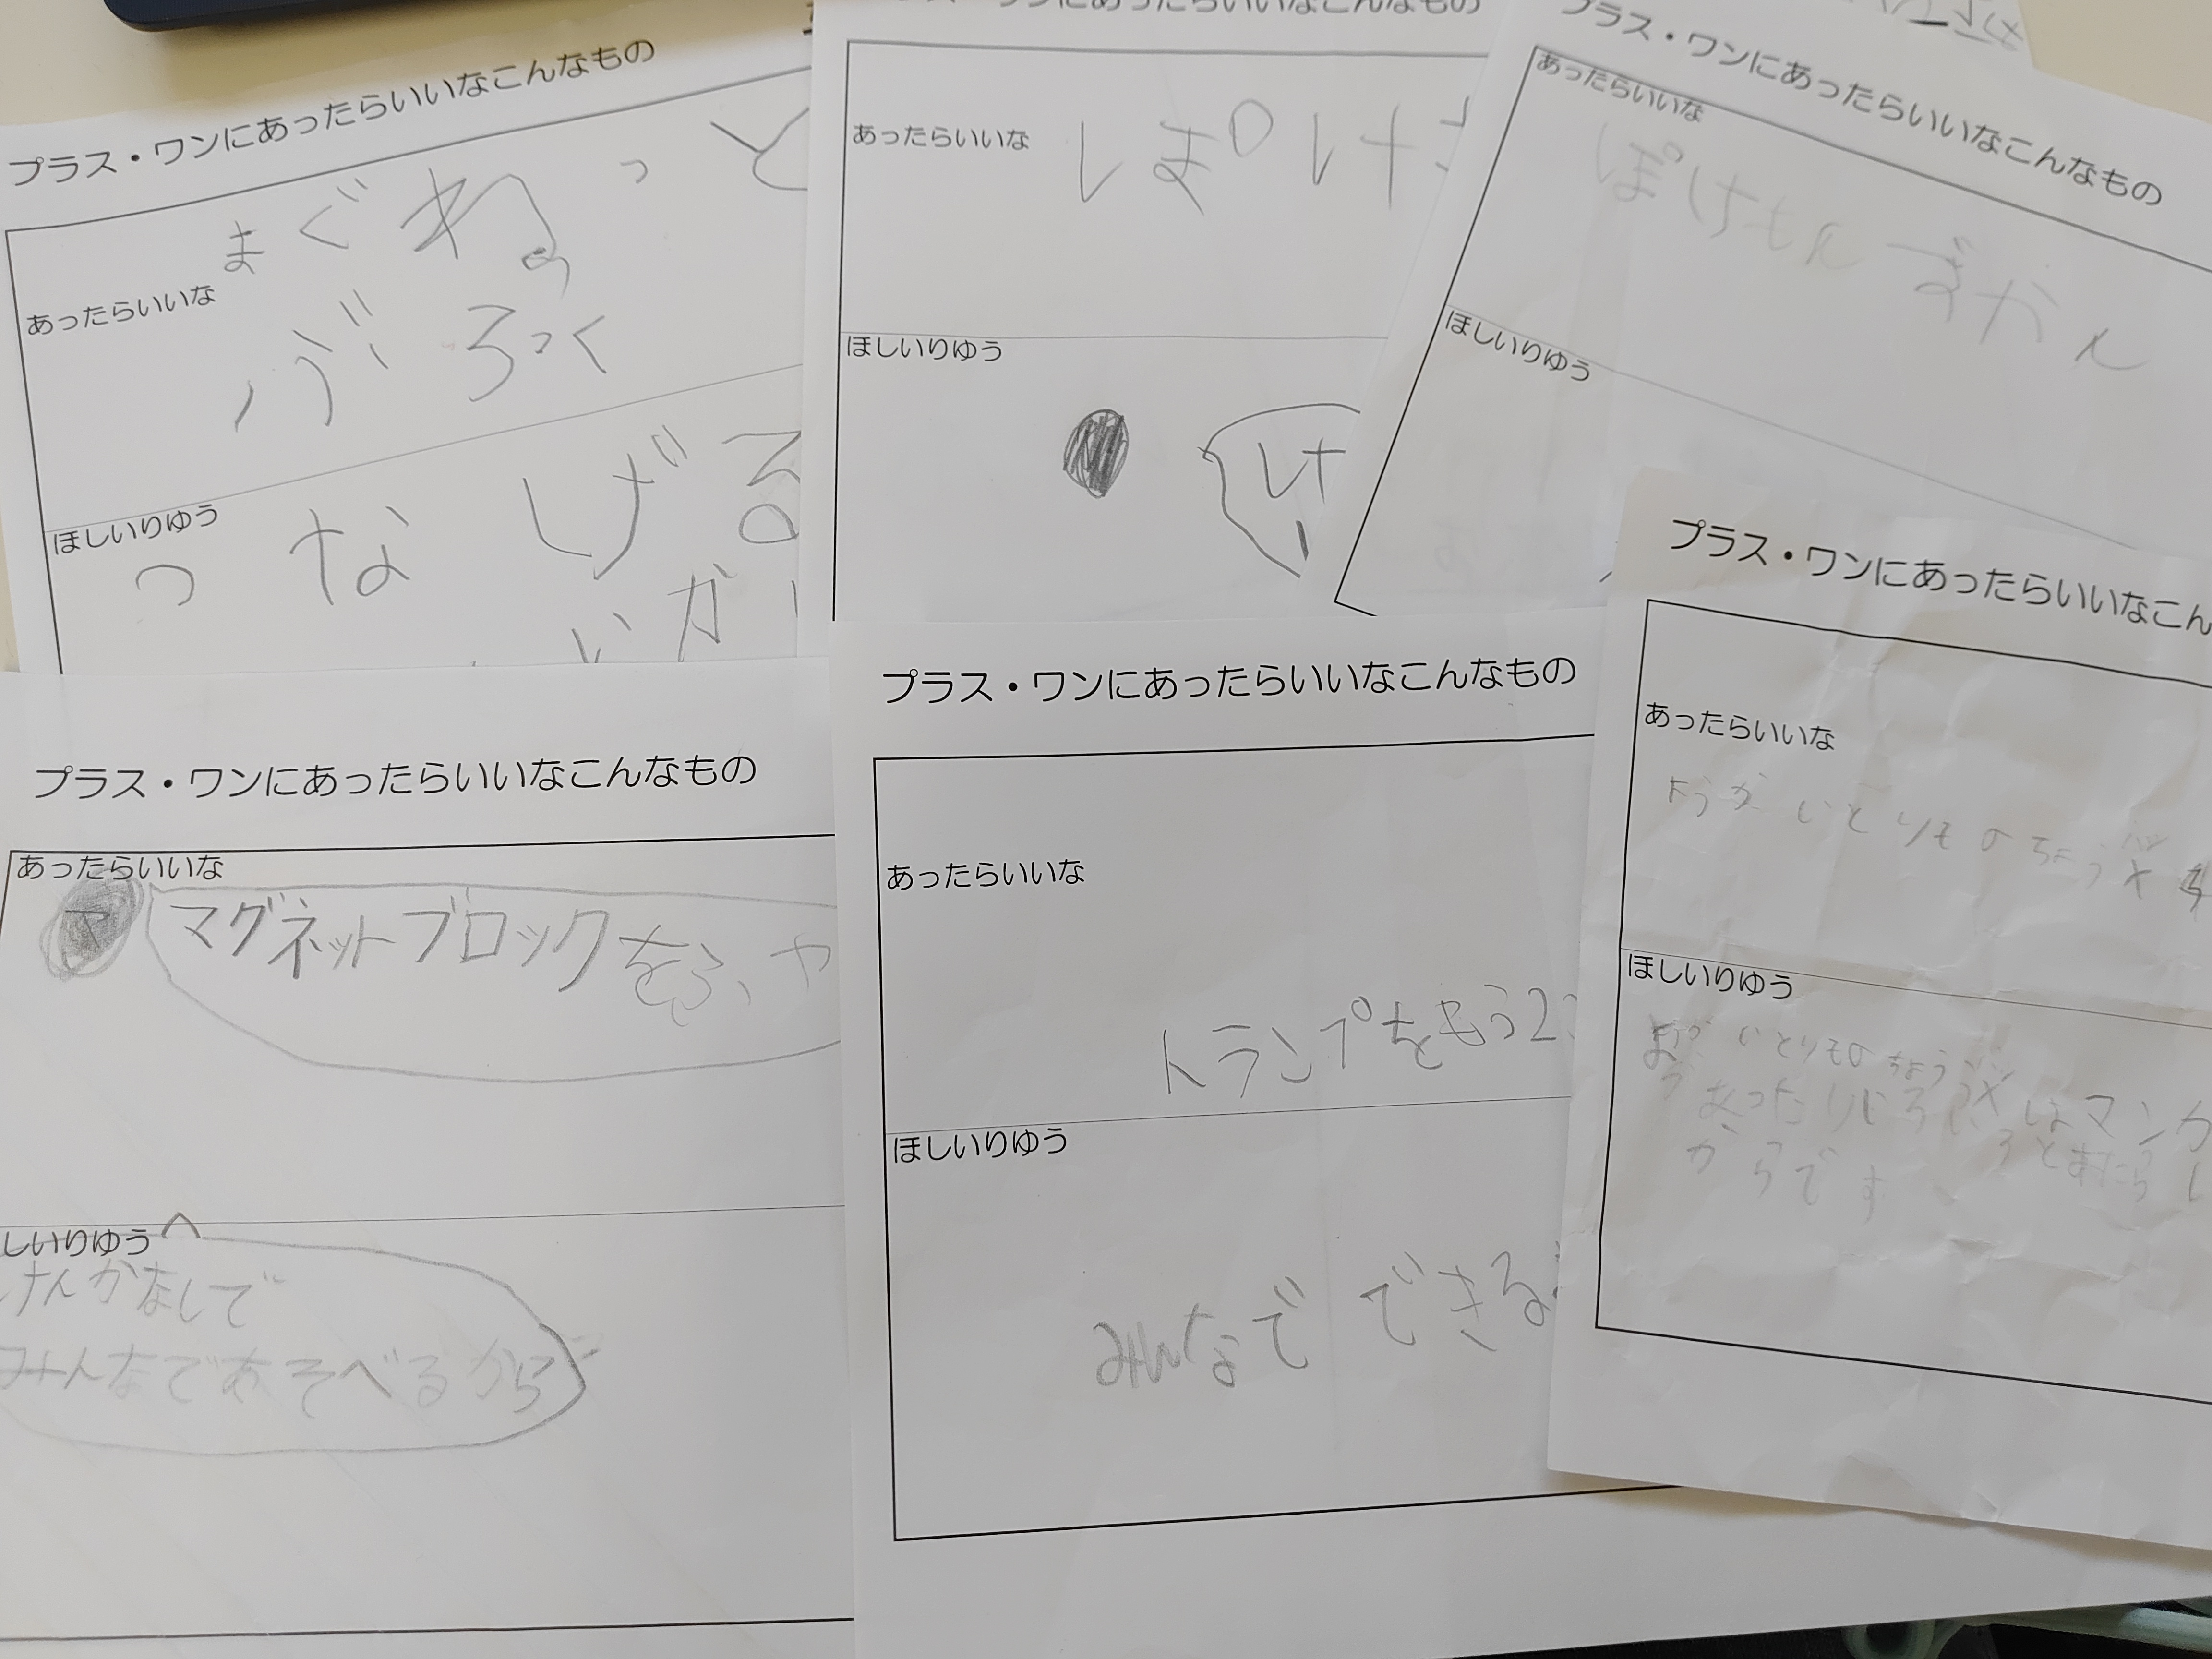 プラス・ワンにあったらいいなこんなもの
あったらいいな
まぐねっと
ぶろっく
ほしいりゆう
つなげる
あったらいいな
ぽけ
ほしいりゆう
け
プラス・ワンにあったらいいなこんなもの
あったらいいな
ぽけもんずかん
ほしいりゆう
プラス・ワンにあったらいいなこんなもの
あったらいいな
マグネットブロックをふや
しいりゆう
けんかなしで
みんなであそべるから
プラス・ワンにあったらいいなこんなもの
あったらいいな
トランプをもう2
ほしいりゆう
みんなでできる
プラス・ワンにあったらいいなこん
あったらいいな
ようかいとりものちょう
ほしいりゆう
いとりものちょう
マンガ
からです